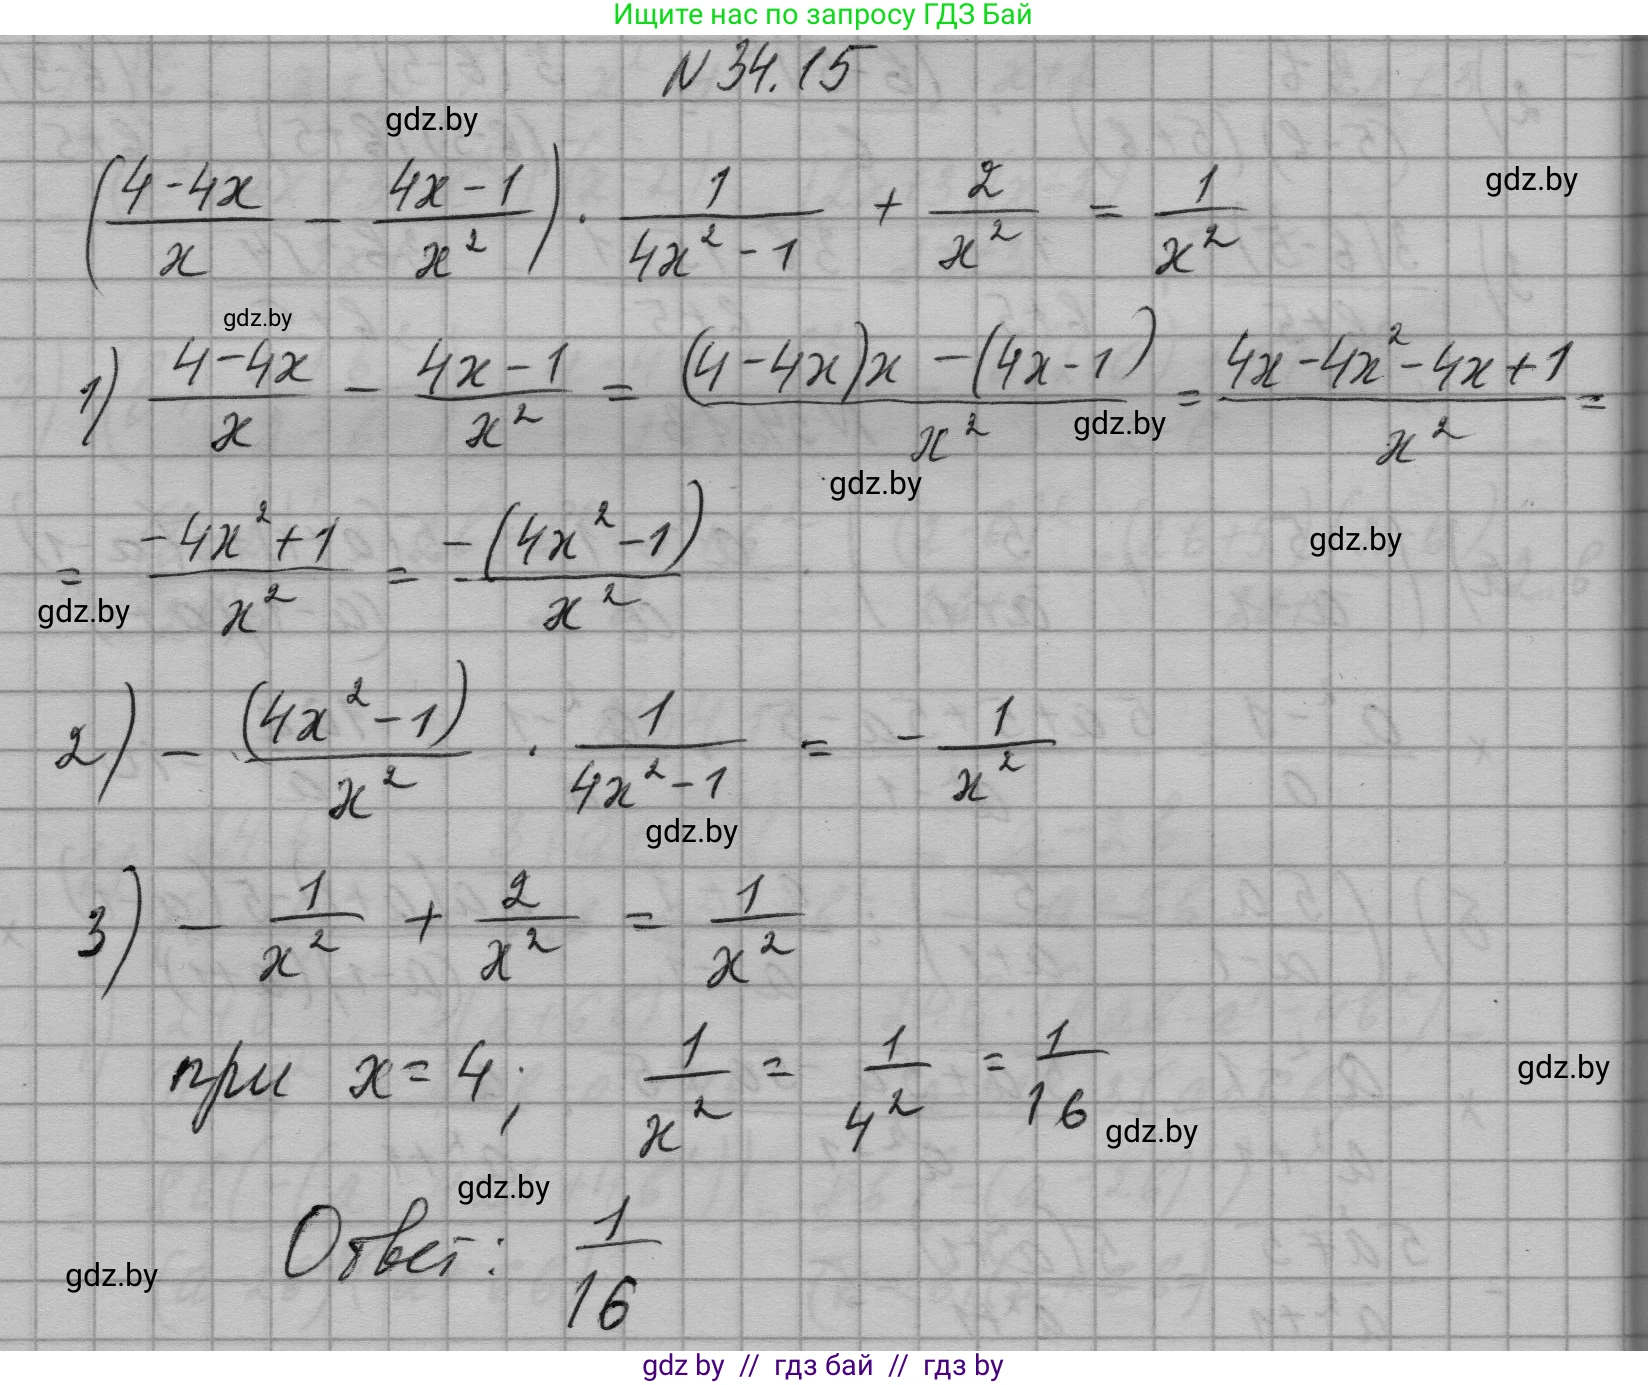 Ищите нас по запросу ГДЗ Бай
N 34.15
gdz.by
(4-4x/x - 4x-1/x²) · 1/4x²-1 + 2/x² = 1/x²
gdz.by
gdz.by
1) 4-4x/x - 4x-1/x² = (4-4x)x-(4x-1)/x² = 4x-4x²-4x+1/x² =
gdz.by
gdz.by
= -4x²+1/x² = -(4x²-1)/x²
gdz.by
gdz.by
2) - (4x²-1)/x² · 1/4x²-1 = - 1/x²
gdz.by
3) - 1/x² + 2/x² = 1/x²
при x=4; 1/x² = 1/4² = 1/16
gdz.by
gdz.by
gdz.by
Ответ: 1/16
gdz.by
gdz by // гдз бай // гдз by